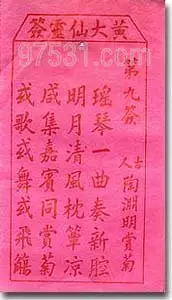 黃大仙靈簽
97531.com
第九簽
古人
陶淵明賞菊
瑤琴一曲奏新腔
明月清風枕簟涼
咸集嘉賓同賞菊
或歌或舞或飛觴